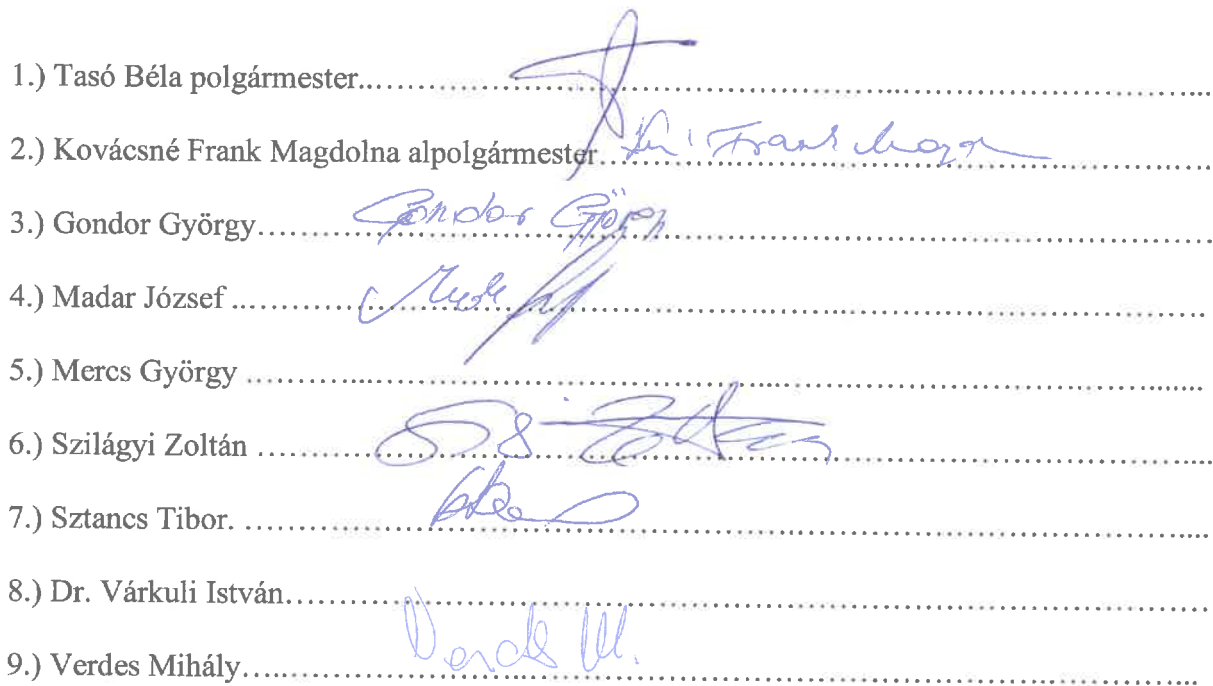 1.) Tasó Béla polgármester.....................................................................
2.) Kovácsné Frank Magdolna alpolgármester Frank
3.) Gondor György Gondor György
4.) Madar József .....................................................................
5.) Mercs György .....................................................................
6.) Szilágyi Zoltán .....................................................................
7.) Sztancs Tibor. .....................................................................
8.) Dr. Várkuli István.....................................................................
9.) Verdes Mihály Verdes M.